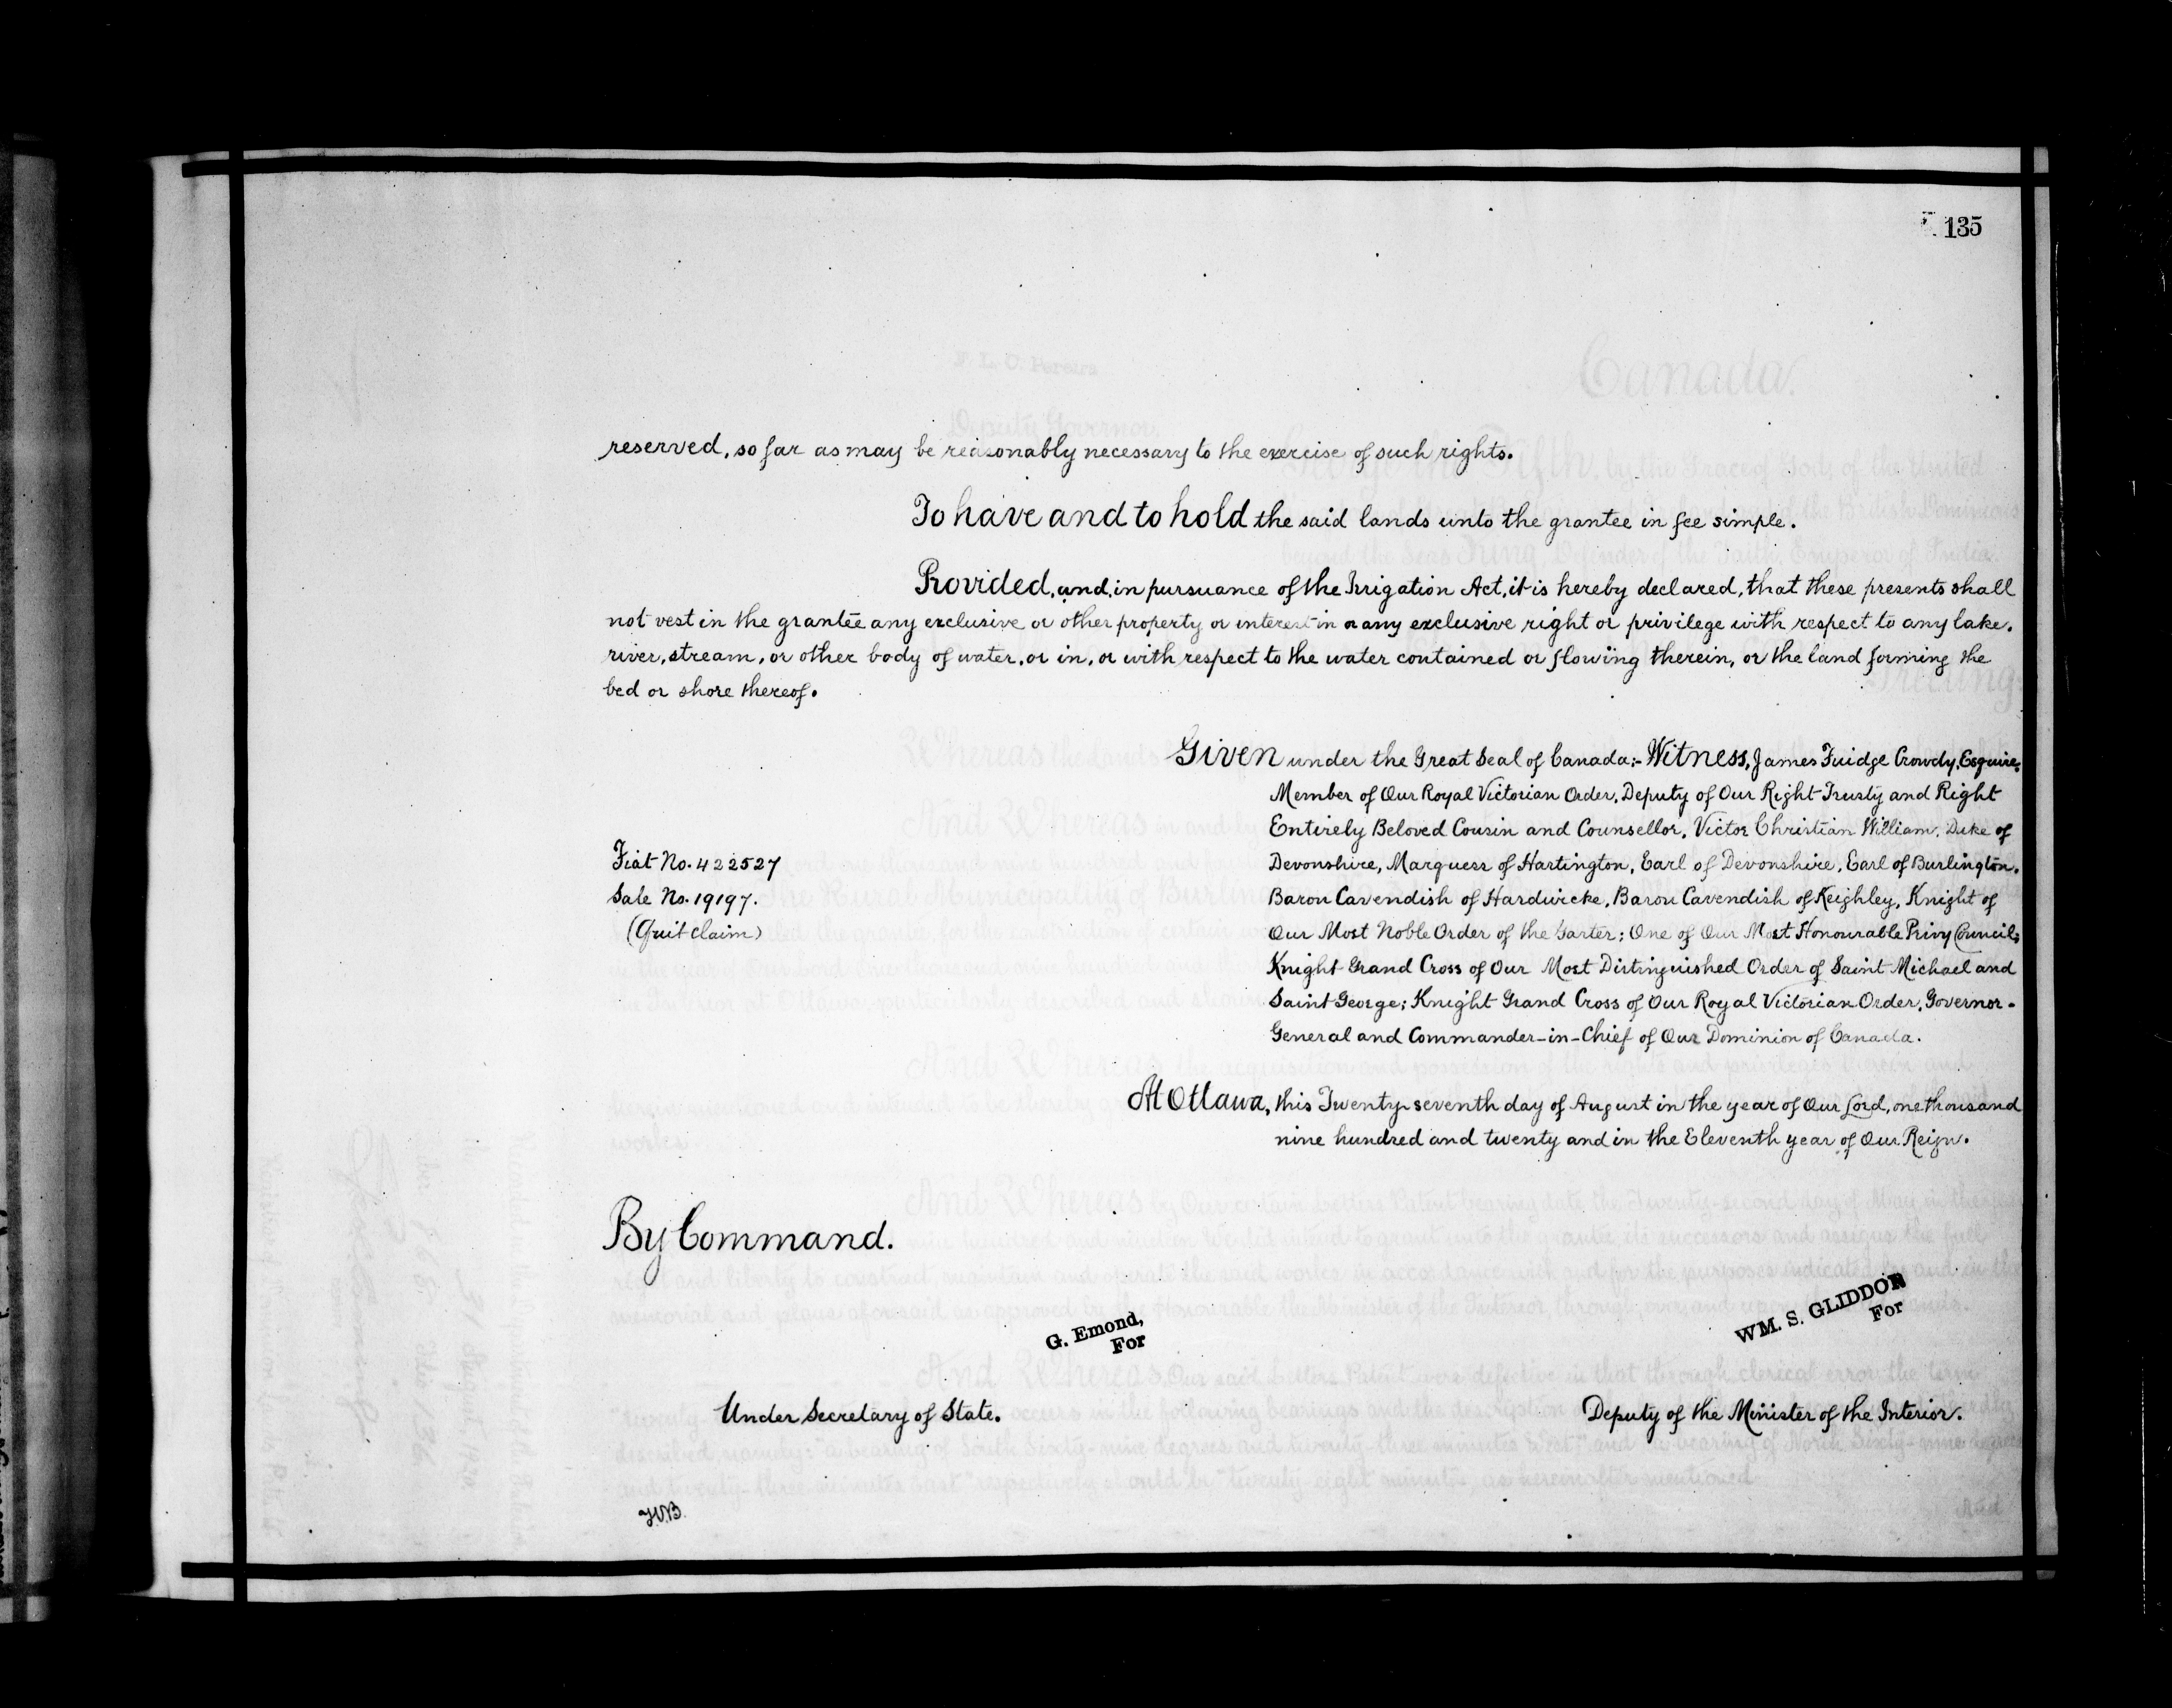 135
reserved, so far as may be reasonably necessary to the exercise of such rights.
To have and to hold the said lands unto the grantee in fee simple.
Provided, and, in pursuance of the Irrigation Act, it is hereby declared, that these presents shall
not vest in the grantee any exclusive or other property or interest in or any exclusive right or privilege with respect to any lake,
river, stream, or other body of water, or in, or with respect to the water contained or flowing therein, or the land forming the
bed or shore thereof.
Given under the Great Seal of Canada:- Witness, James Fuidge Crowdy, Esquire,
Member of Our Royal Victorian Order, Deputy of Our Right Trusty and Right
Entirely Beloved Cousin and Counsellor, Victor Christian William, Duke of
Devonshire, Marquess of Hartington, Earl of Devonshire, Earl of Burlington,
Baron Cavendish of Hardwicke, Baron Cavendish of Keighley, Knight of
Our Most Noble Order of the Garter; One of Our Most Honourable Privy Council;
Knight Grand Cross of Our Most Distinguished Order of Saint Michael and
Saint George; Knight Grand Cross of Our Royal Victorian Order, Governor-
General and Commander-in-Chief of Our Dominion of Canada.
Fiat No. 422527
Sale No. 19197.
(Quit claim)
At Ottawa, this Twenty-seventh day of August in the year of Our Lord, one thousand
nine hundred and twenty and in the Eleventh year of Our Reign.
By Command.
G. Emond,
For
Under Secretary of State.
WM. S. GLIDDON
For
Deputy of the Minister of the Interior.